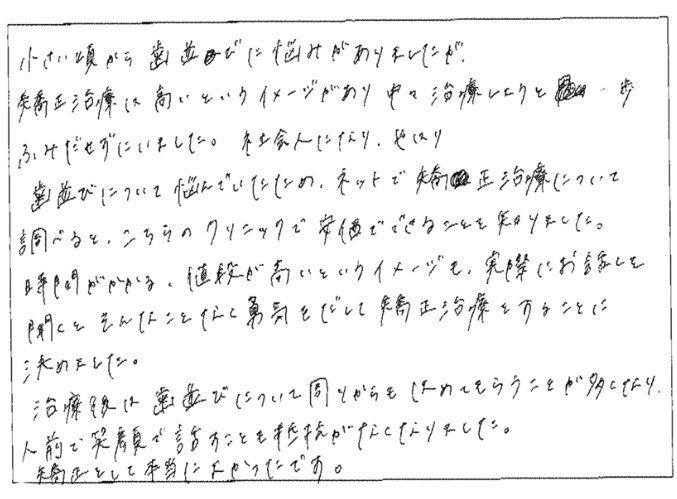 小さい頃から歯並びに悩みがありましたが、
矯正治療は高いというイメージがあり中々治療しようと一歩
ふみだせずにいました。社会人になり、やはり
歯並びについて悩んでいたため、ネットで矯正治療について
調べると、こちらのクリニックで安価でできることを知りました。
時間がかかる、値段が高いというイメージも、実際にお話しを
聞くとそんなことなく勇気をだして矯正治療をすることに
決めました。
治療後は歯並びについて周りからもほめてもらうことが多くなり、
人前で笑顔で話すことも抵抗がなくなりました。
矯正をして本当によかったです。